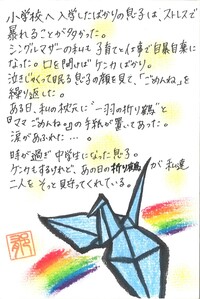 小学校へ入学したばかりの息子は、ストレスで
暴れることが多かった。
シングルマザーの私も子育てと仕事で自暴自棄に
なった。口を開けばケンカばかり。
泣きじゃくって眠る息子の顔を見て、「ごめんね」を
繰り返した。
ある日、私の枕元に“一羽の折り鶴”と
『ママごめんね。』の手紙が置いてあった。
涙があふれた…。
時が過ぎ中学生になった息子。
ケンカもするけれど、あの日の折り鶴が私達
二人をそっと見守ってくれている。